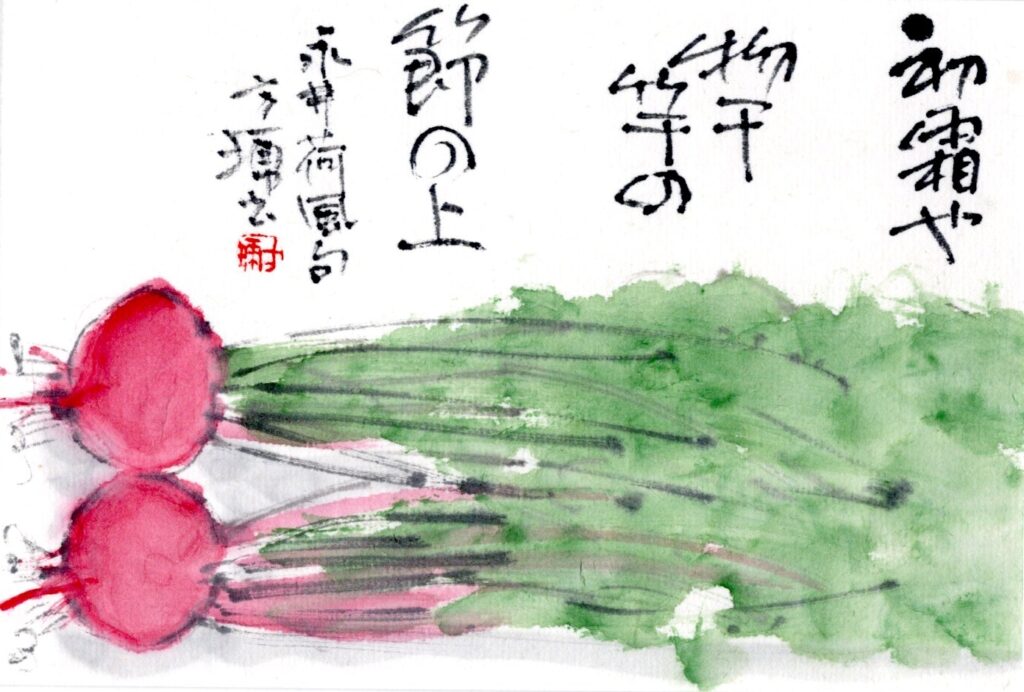 初霜や
物干
竿の
節の上
永井荷風句